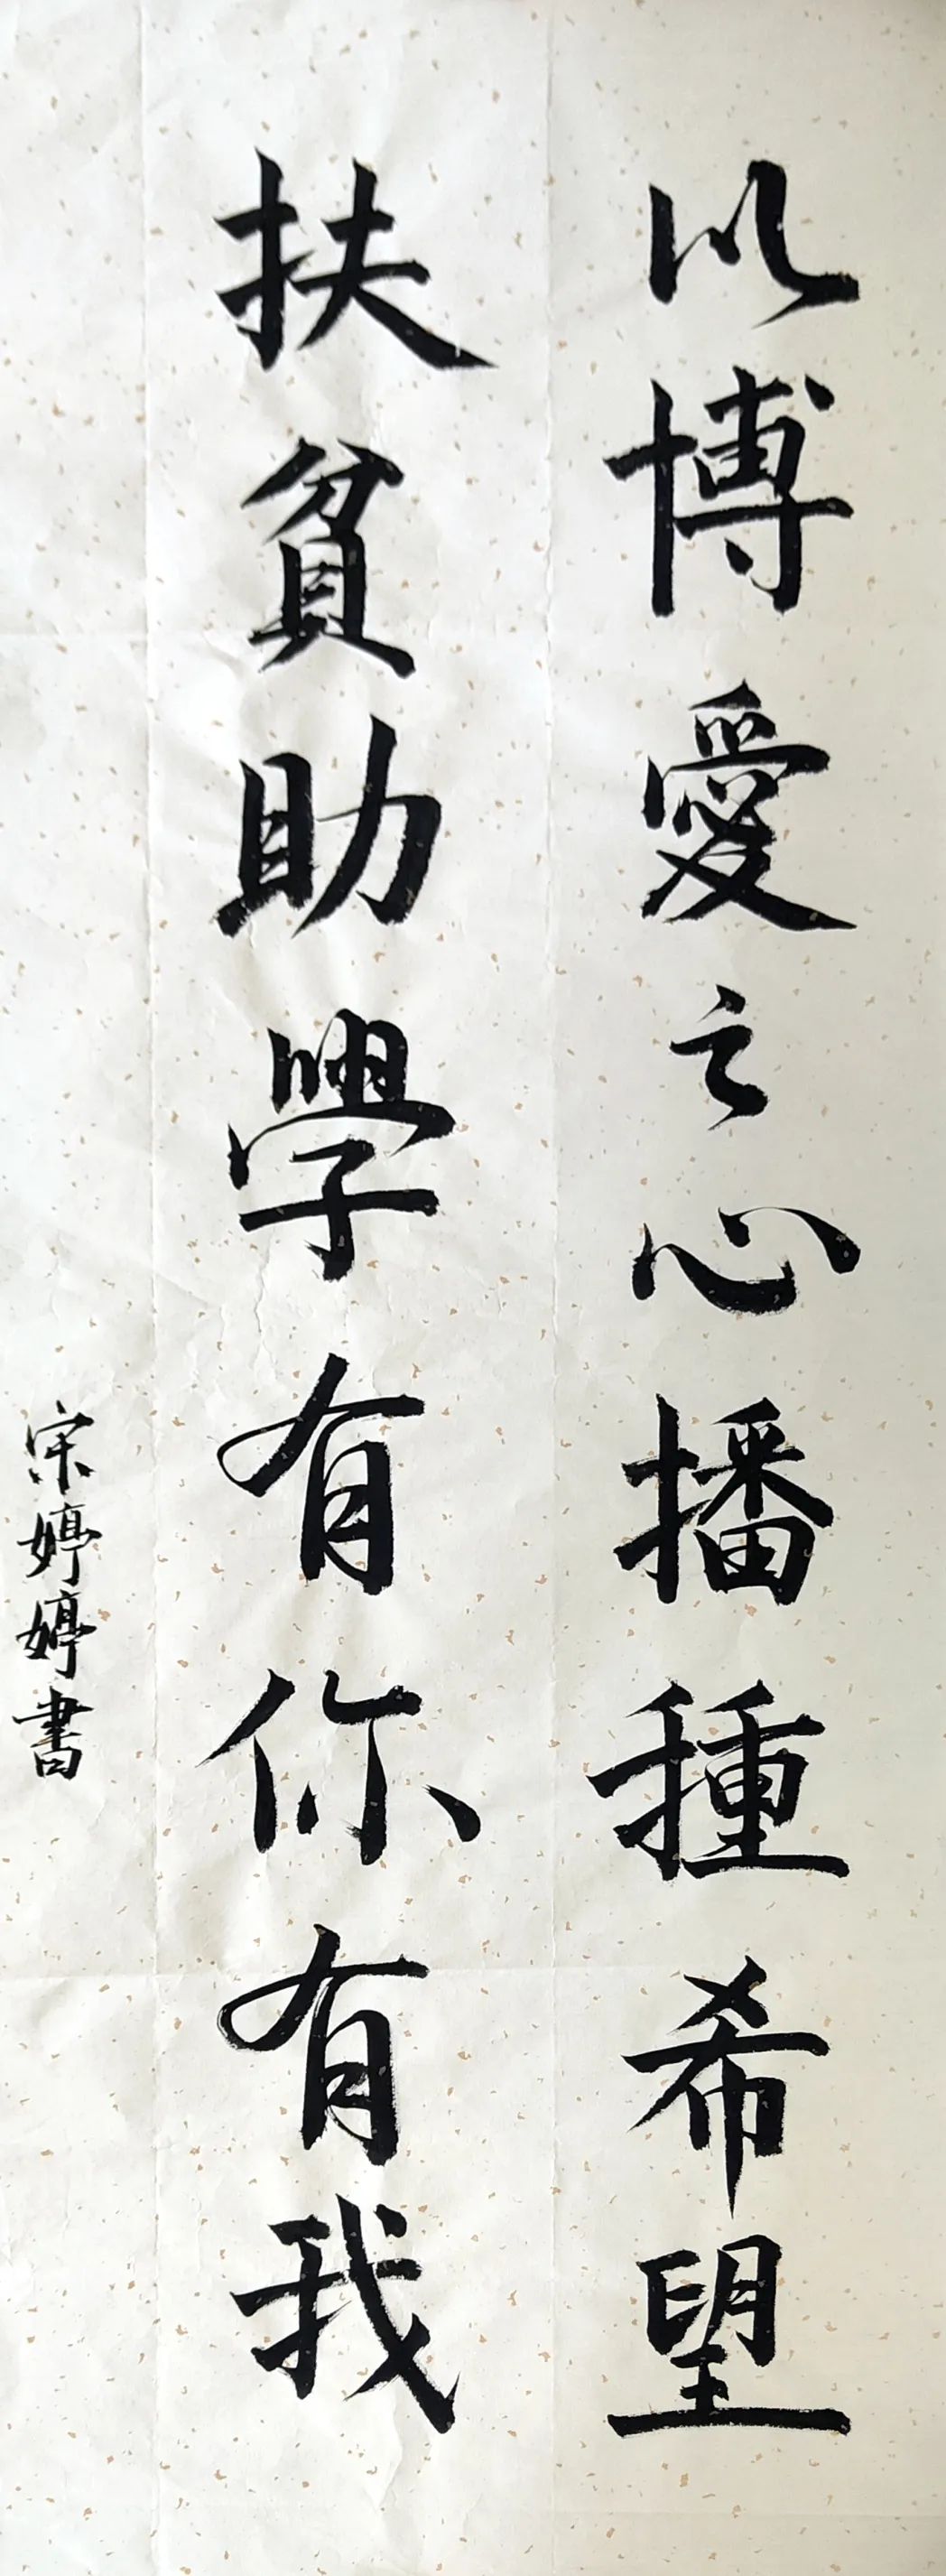 以博愛之心播種希望
扶貧助學有你有我
宋婷婷書